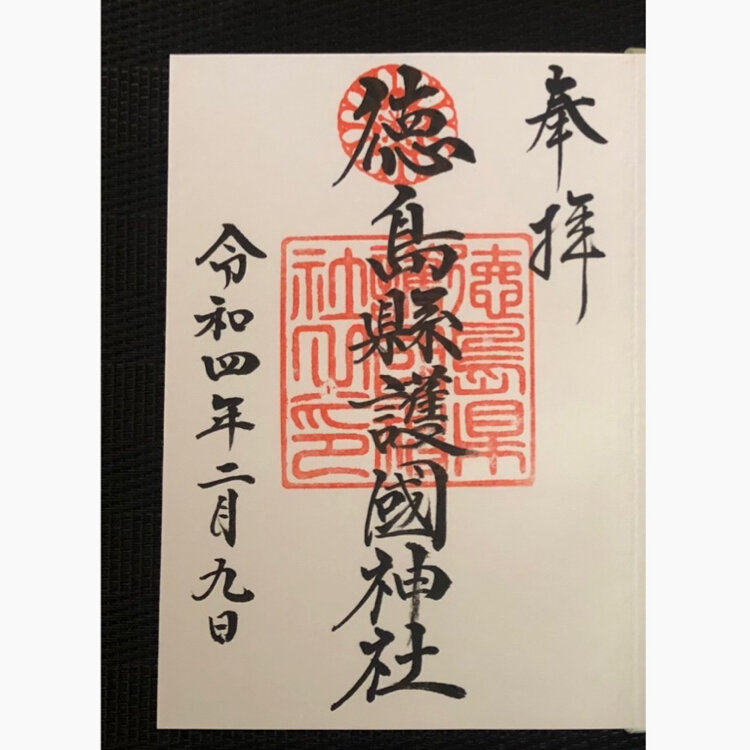 奉拝
徳島縣護國神社
令和四年二月九日
徳島県
社之印